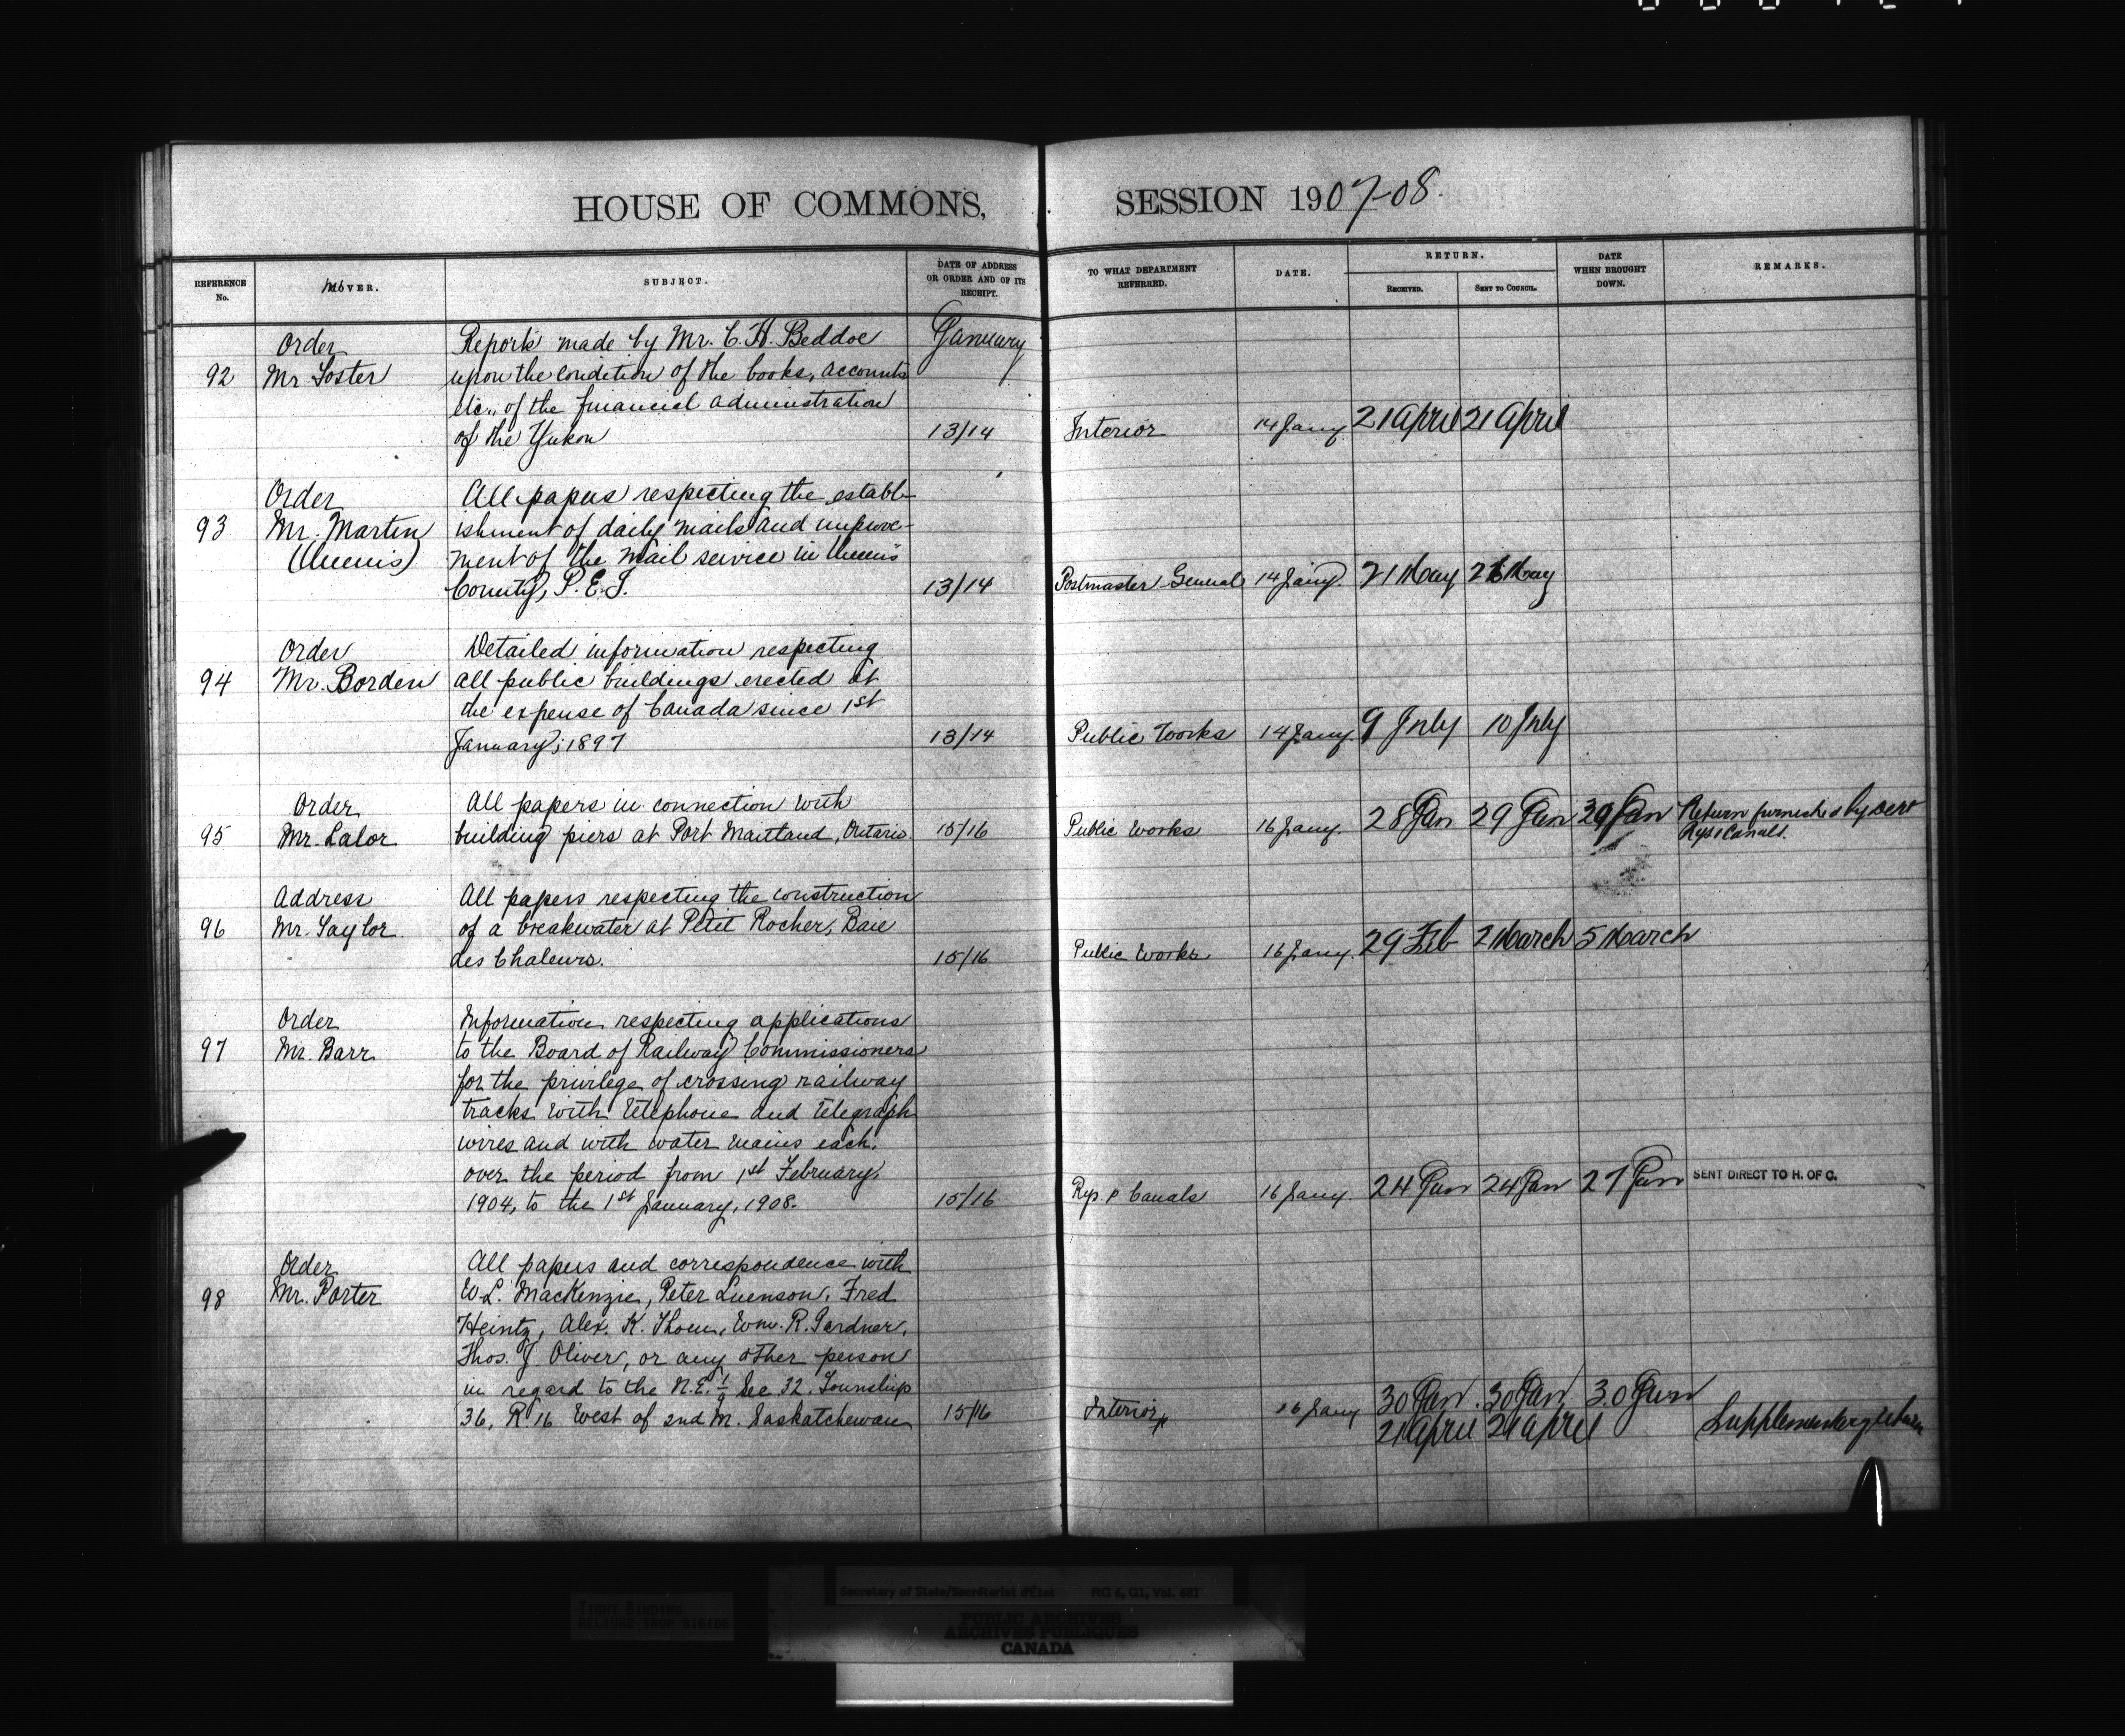 HOUSE OF COMMONS, SESSION 1907-08.
REFERENCE No.
MOVER.
SUBJECT.
DATE OF ADDRESS OR ORDER AND OF ITS RECEIPT.
TO WHAT DEPARTMENT REFERRED.
DATE.
RETURN.
RECEIVED.
SENT TO COUNCIL.
DATE WHEN BROUGHT DOWN.
REMARKS.
Order Reports made by Mr. C. H. Beddoe January
92 Mr Foster upon the condition of the books, accounts
etc., of the financial administration
of the Yukon 13/14 Interior 14 Jany. 21 April 21 April
Order All papers respecting the establ-
93 Mr. Martin ishment of daily mails and improve-
(Queens) ment of the mail service in Queens
County, P.E.I. 13/14 Postmaster General 14 Jany. 21 May 21 May
Order Detailed information respecting
94 Mr. Borden all public buildings erected at
the expense of Canada since 1st
January, 1897 13/14 Public Works 14 Jany. 9 July 10 July
Order All papers in connection with
95 Mr. Lalor building piers at Port Maitland, Ontario. 15/16 Public Works 16 Jany. 28 Jan 29 Jan 29 Jan Return furnished by
Rys & Canals.
Address All papers respecting the construction
96 Mr. Taylor. of a breakwater at Petit Rocher, Baie
des Chaleurs. 15/16 Public Works. 16 Jany. 29 Feb 2 March 5 March
Order Information respecting applications
97 Mr. Barr to the Board of Railway Commissioners
for the privilege of crossing railway
tracks with telephone and telegraph
wires and with water mains each,
over the period from 1st February,
1904, to the 1st January, 1908. 15/16 Rys & Canals 16 Jany 24 Jan 24 Jan 27 Jan SENT DIRECT TO H. OF C.
Order All papers and correspondence with
98 Mr. Porter W. L. MacKenzie, Peter Luenson, Fred
Heintz, Alex. K. Thom, Wm. R. Gardner,
Thos. J. Oliver, or any other person
in regard to the N.E. Sec 32. Township
36, R 16 West of 2nd M. Saskatchewan 15/16 Interior 16 Jany 30 Jan. 30 Jan, 30 Jan
21 April 21 April Supplementary return
TIGHT BINDING
RELIURE TROP RIGIDE
Secretary of State/Secrétariat d'État RG 6, G1, Vol. 681
PUBLIC ARCHIVES
ARCHIVES PUBLIQUES
CANADA